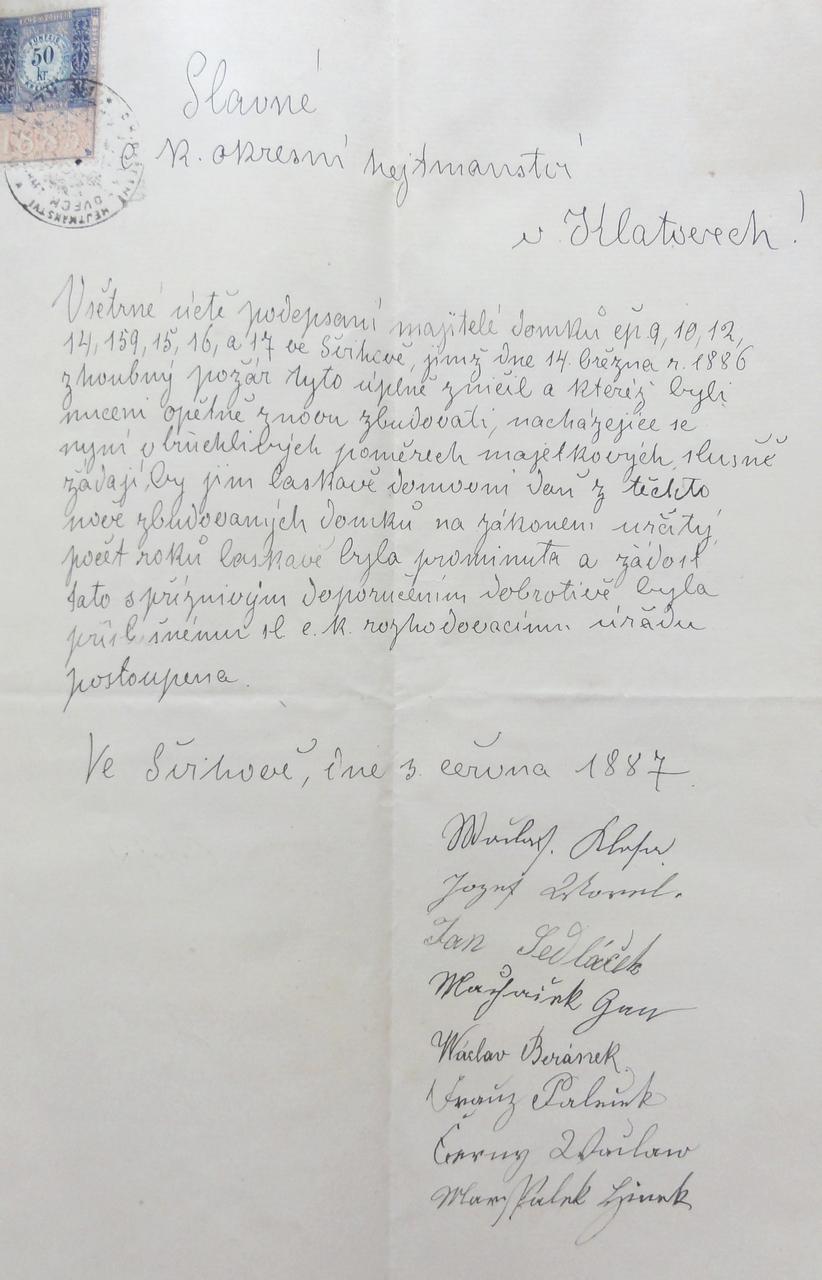 50
kr
1885
Slavné
c. k. okresní hejtmanství
v Klatovech!
V šetrné úctě podepsaní majitelé domků čp. 9, 10, 12,
14, 159, 15, 16, a 17 ve Svrhově, jimž dne 14. března r. 1886
zhoubný požár tyto úplně zničil a kteréž byli
nuceni opětně znovu zbudovati, nacházejíce se
nyní v truchlivých poměrech majetkových, slušně
žádají, by jim laskavě domovní daň z těchto
nově zbudovaných domků na zákonem určitý
počet roků laskavě byla prominuta a žádost
tato s příznivým doporučením dobrotivě byla
příslušnému sl c. k. rozhodovacímu úřadu
postoupena.
Ve Svrhově, dne 3. června 1887
Jozef
Jan Sedláček
Wáclav Beránek
Franz
Černy Wáclaw
Hinek